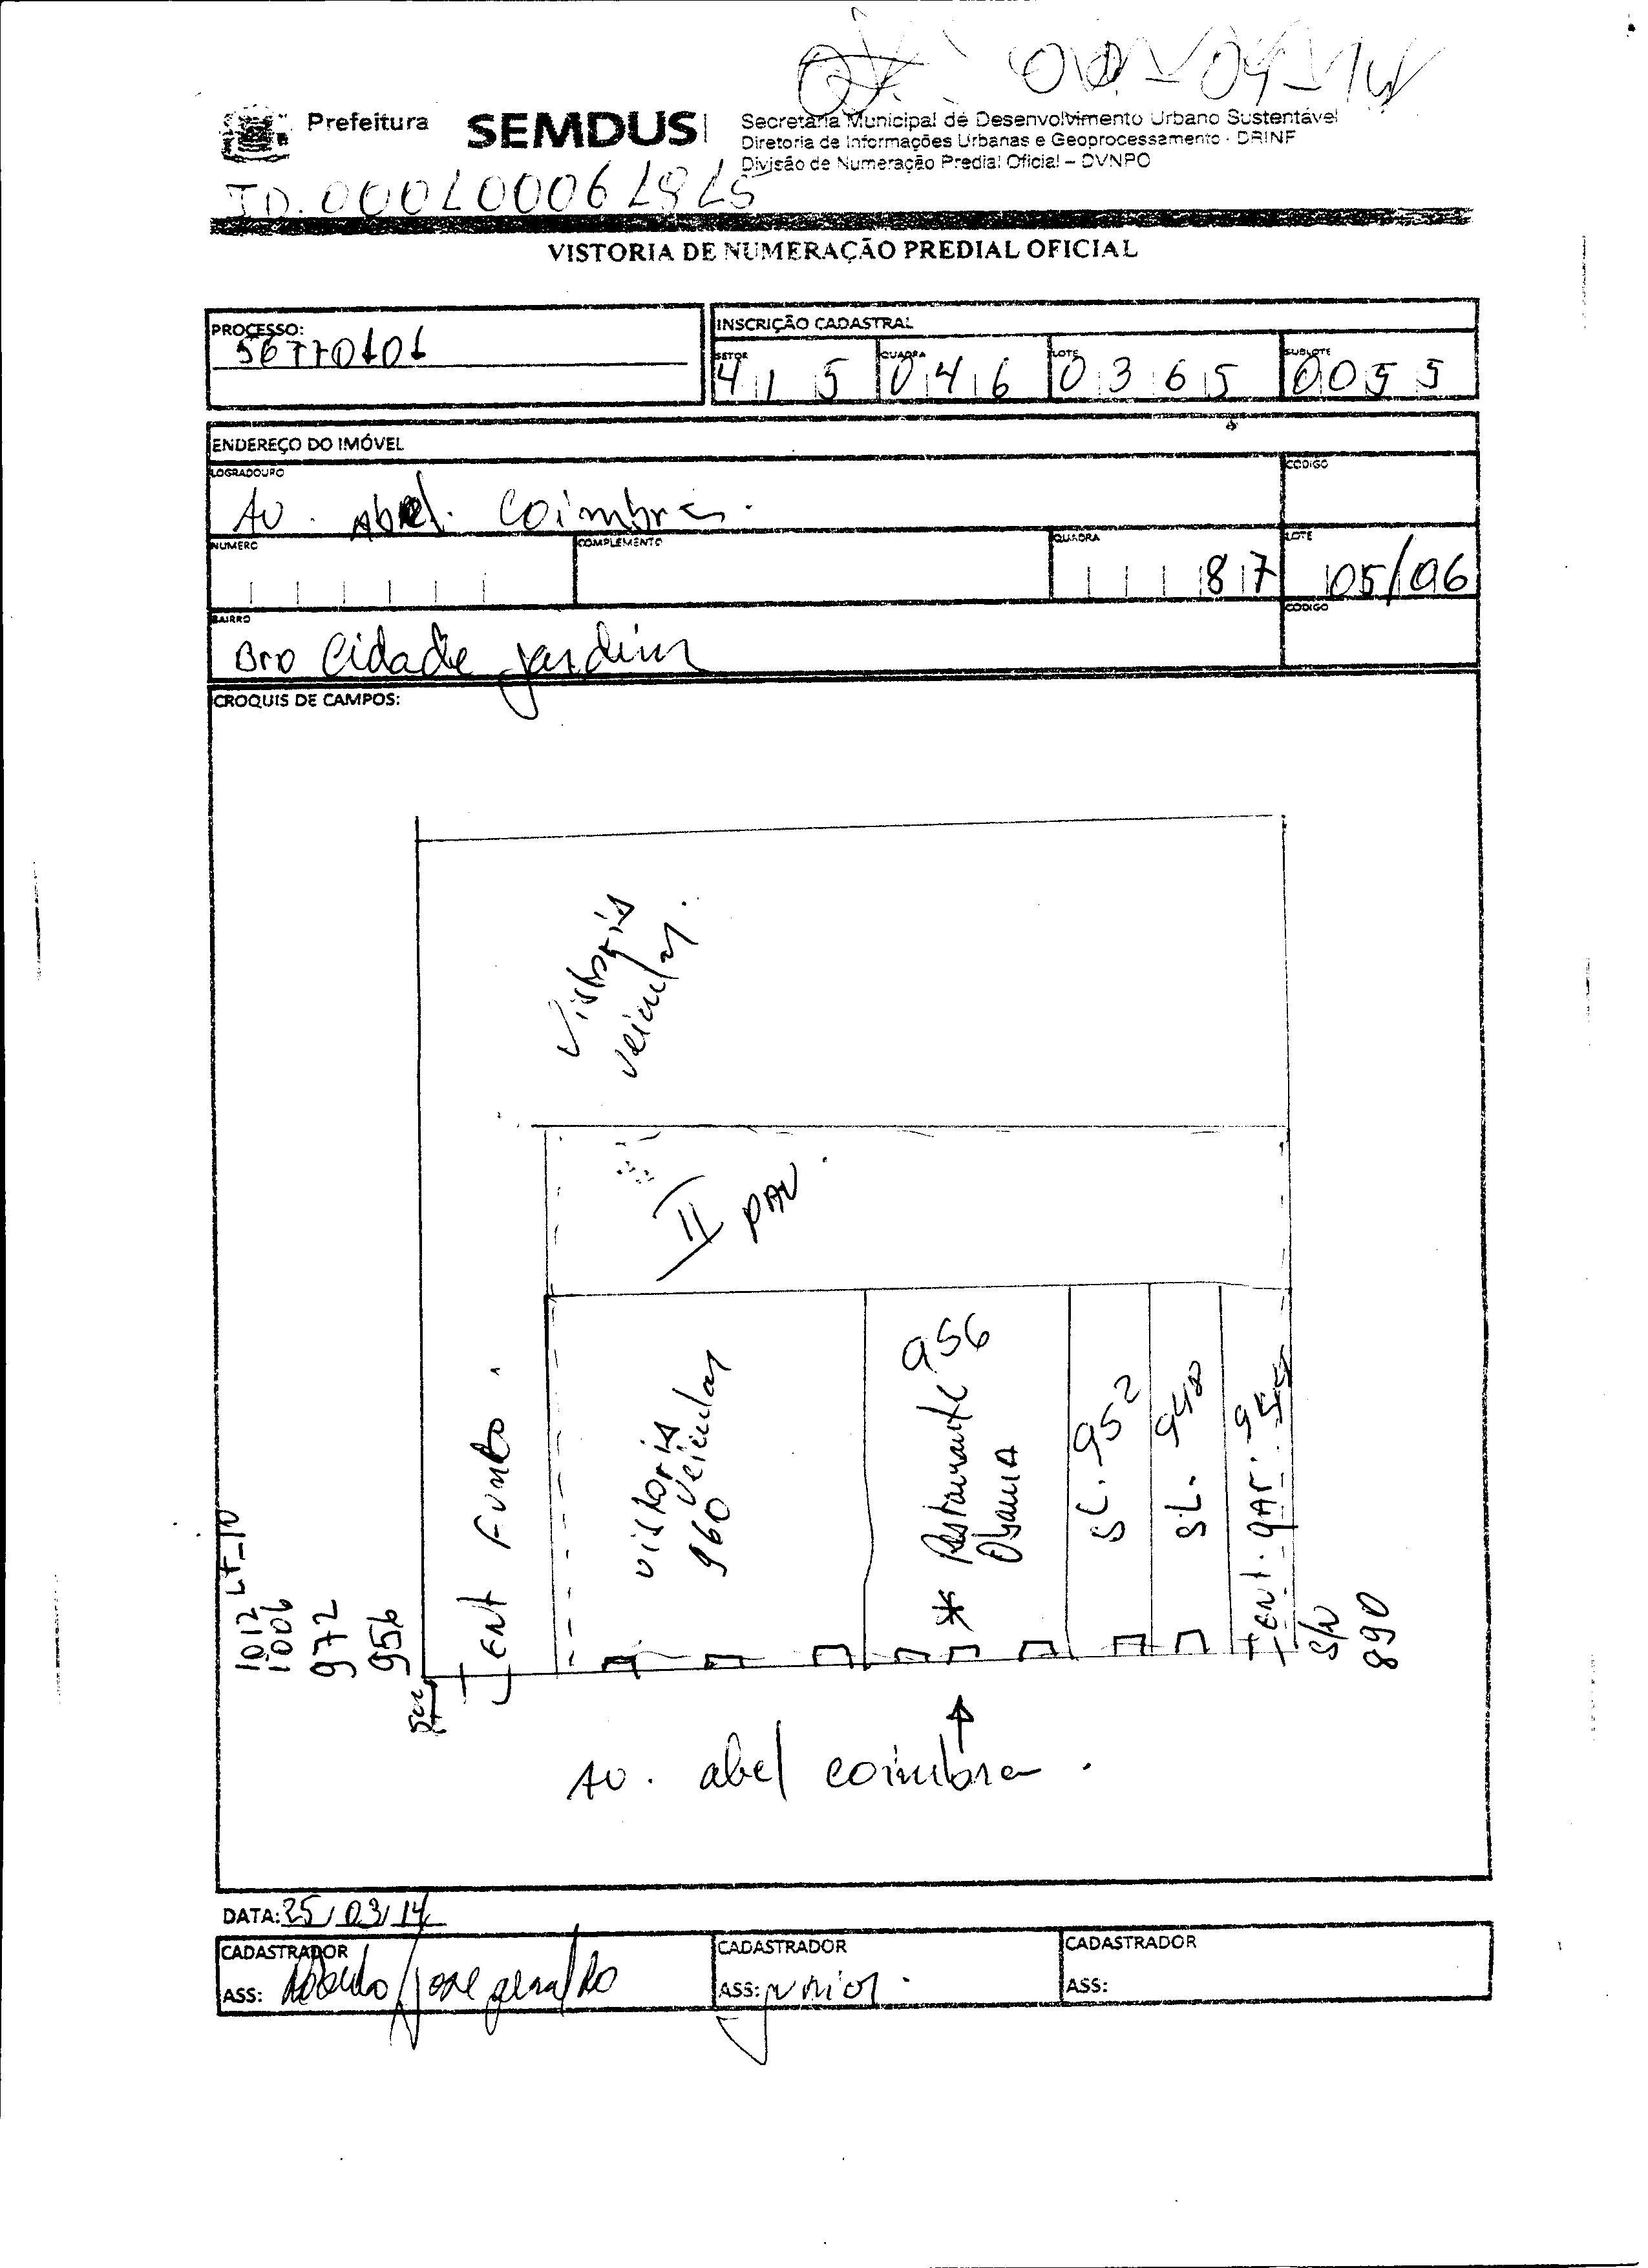 Prefeitura SEMDUS
Secretaria Municipal de Desenvolvimento Urbano Sustentável
Diretoria de Informações Urbanas e Geoprocessamento - DRINF
Divisão de Numeração Predial Oficial – DVNPO
VISTORIA DE NUMERAÇÃO PREDIAL OFICIAL
PROCESSO:
INSCRIÇÃO CADASTRAL
SETOR 415 QUADRA 046 LOTE 0365 SUBLOTE 0055
ENDEREÇO DO IMÓVEL
LOGRADOURO CODIGO
Av. Abel. Coimbra.
NUMERO COMPLEMENTO QUADRA 87 LOTE 05/06
BAIRRO CODIGO
Bro Cidade jardim
CROQUIS DE CAMPOS:
Vistoria
veicular.
II PAV.
Ent Fundo.
vistoria
veicular
960
956
* Restaurante
Obama
SL. 952
SL. 948
Ent. gar.
1012 LT_10
1006
972
956
S/N
890
Av. abel coimbra.
DATA: 25/03/14
CADASTRADOR CADASTRADOR CADASTRADOR
ASS: Roberto/jose geraldo ASS: junior. ASS: